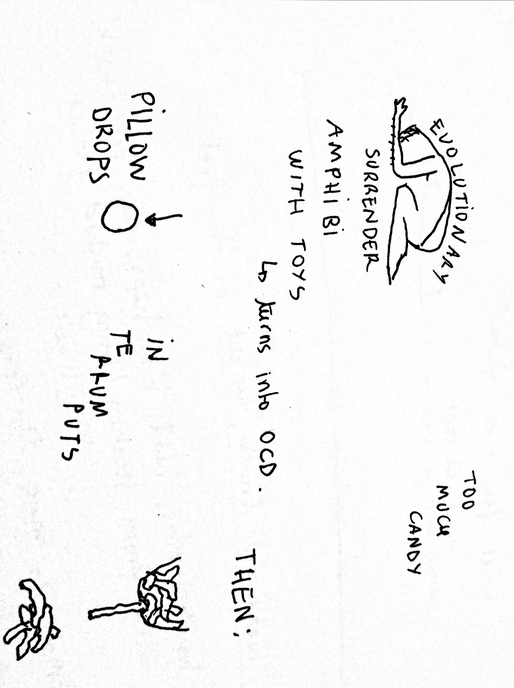 EVOLUTIONARY
SURRENDER
AMPHiBi
WITH TOYS
↳ turns into OCD.
TOO
MUCH
CANDY
THEN:
PILLOW
DROPS
iN
TE
RRUM
PUTS